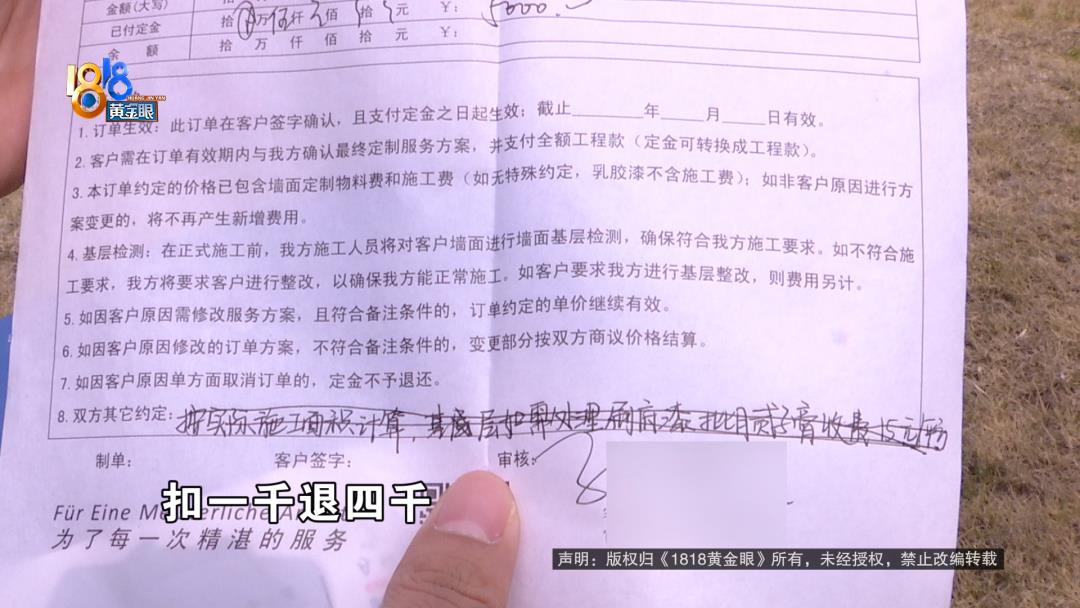 金额(大写) 拾 万 仟 佰 拾 元 ¥: 5000.
已付定金 拾 万 仟 佰 拾 元 ¥:
余 额
1818
HUANG JIN YAN
黄金眼
1.订单生效：此订单在客户签字确认，且支付定金之日起生效；截止________年_____月_____日有效。
2.客户需在订单有效期内与我方确认最终定制服务方案，并支付全额工程款（定金可转换成工程款）。
3.本订单约定的价格已包含墙面定制物料费和施工费（如无特殊约定，乳胶漆不含施工费）；如非客户原因进行方
案变更的，将不再产生新增费用。
4.基层检测：在正式施工前，我方施工人员将对客户墙面进行墙面基层检测，确保符合我方施工要求。如不符合施
工要求，我方将要求客户进行整改，以确保我方能正常施工。如客户要求我方进行基层整改，则费用另计。
5.如因客户原因需修改服务方案，且符合备注条件的，订单约定的单价继续有效。
6.如因客户原因修改的订单方案，不符合备注条件的，变更部分按双方商议价格结算。
7.如因客户原因单方面取消订单的，定金不予退还。
8.双方其它约定：按实际施工面积计算，基底层如需处理 收费15元/
制单： 客户签字： 审核：
Für Eine Me
为了每一次精湛的服务
扣一千退四千
声明：版权归《1818黄金眼》所有，未经授权，禁止改编转载